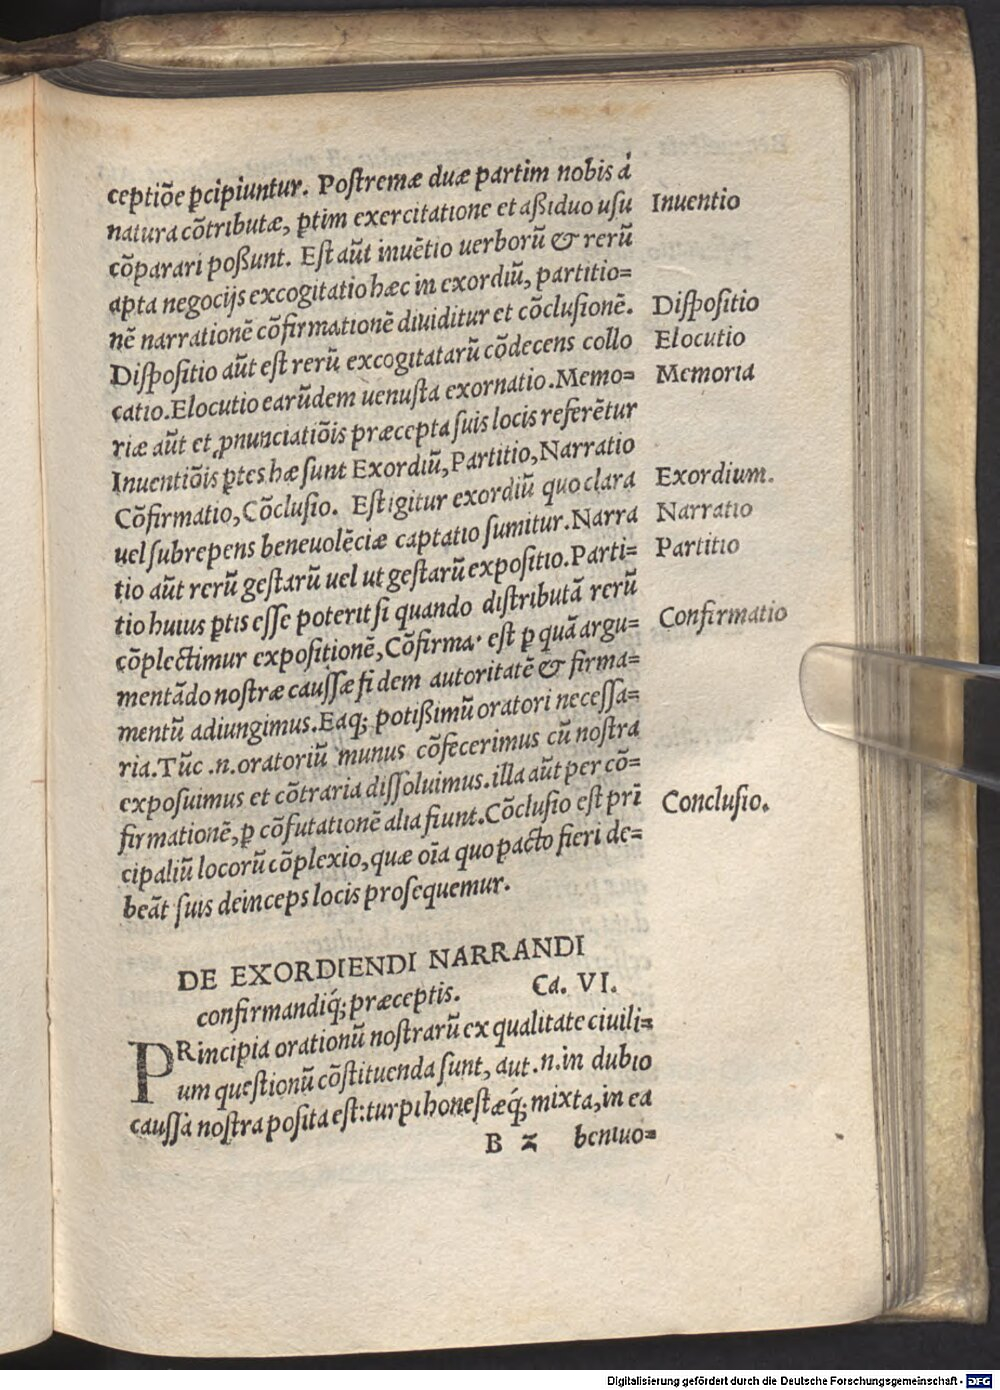 ceptiõe ꝑcipiuntur. Postremæ duæ partim nobis á
natura cõtributæ, ꝑtim exercitatione et aßiduo usu
cõparari poßunt. Est aũt inuẽtio uerborũ & rerũ
apta negocijs excogitatio hæc in exordiũ, partitio=
nẽ narrationẽ cõfirmationẽ diuiditur et cõclusionẽ.
Dispositio aũt est rerũ excogitatarũ cõdecens collo
catio. Elocutio earũdem uenusta exornatio. Memo=
riæ aũt et ꝓnunciatiõis præcepta suis locis referẽtur
Inuentiõis ꝑtes hæ sunt Exordiũ, Partitio, Narratio
Cõfirmatio, Cõclusio. Est igitur exordiũ quo clara
uel subrepens beneuolẽciæ captatio sumitur. Narra
tio aũt rerũ gestarũ uel ut gestarũ expositio. Parti=
tio huius ꝑtis esse poterit si quando distributã rerũ
cõplectimur expositionẽ, Cõfirma· est ꝑ quã argu=
mentãdo nostræ caussæ fidem autoritatẽ & firma=
mentũ adiungimus. Eaq; potißimũ oratori necessa=
ria. Tũc .n. oratoriũ munus cõfecerimus cũ nostra
exposuimus et cõtraria dissoluimus. illa aũt per cõ=
firmationẽ, ꝑ cõfutationẽ alia fiunt. Cõclusio est pri̅
cipaliũ locorũ cõplexio, quæ oĩa quo pacto fieri de=
beãt suis deinceps locis prosequemur.
Inuentio
Dispositio
Elocutio
Memoria
Exordium.
Narratio
Partitio
Confirmatio
Conclusio.
DE EXORDIENDI NARRANDI
confirmandiq́; præceptis. Ca. VI.
PRincipia orationũ nostrarũ ex qualitate ciuili=
um questionũ cõstituenda sunt, aut .n. in dubio
caussa nostra posita est: turpi honestæq́; mixta, in ea
B 2 beniuo=
Digitalisierung gefördert durch die Deutsche Forschungsgemeinschaft - DFG